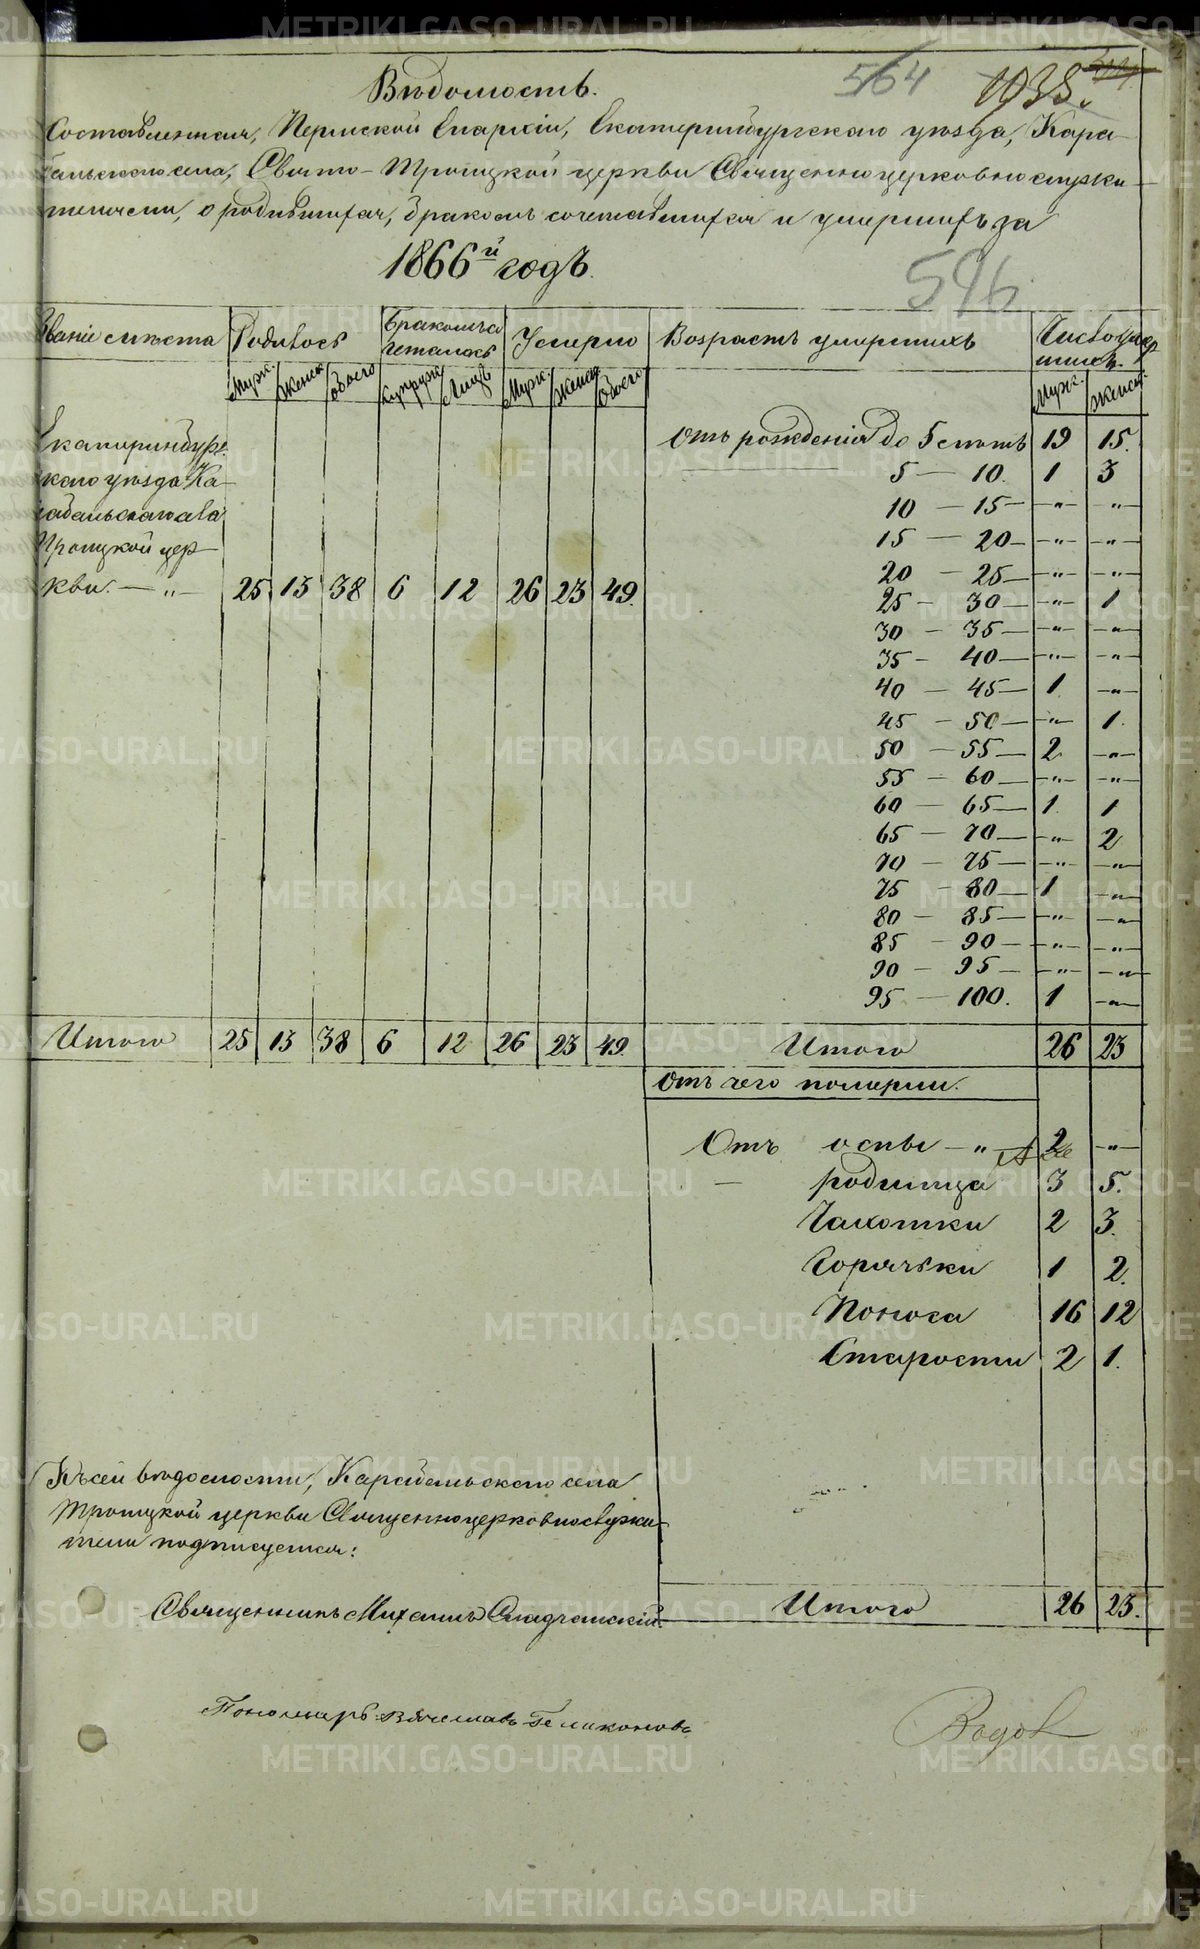 564 1038.
Вѣдомость.
Составленная, Пермской Епархіи, Екатеринбургскаго уѣзда, Кара-
бальскаго села, Свято-Троицкой церкви Священноцерковнослужи-
телями, о родившихся, бракомъ сочетавшихся и умершихъ за
1866й годъ.
596
Званіе мѣста Родилось Бракомъ сочеталось Умерло Возрастъ умершихъ Число умершихъ.
Муж. Женск. Обоего Супруж. Лицъ Муж. Женск. Обоего Муж. Женск.
Екатеринбург-
скаго уѣзда Ка-
рабальскаго села
Троицкой цер-
кви. — „ — 25 13 38 6 12 26 23 49.
Отъ рожденія до 5 лѣтъ 19 15.
5 — 10. 1 3
10 — 15 — „ — — „ —
15 — 20 — „ — — „ —
20 — 25 — „ — — „ —
25 — 30 — „ — 1
30 — 35 — „ — — „ —
35 — 40 — „ — — „ —
40 — 45 — 1 — „ —
45 — 50 — „ — 1.
50 — 55 — 2 — „ —
55 — 60 — „ — — „ —
60 — 65 — 1 1
65 — 70 — „ — 2
70 — 75 — „ — — „ —
75 — 80 — 1 — „ —
80 — 85 — „ — — „ —
85 — 90 — „ — — „ —
90 — 95 — „ — — „ —
95 — 100. 1 — „ —
Итого 25 13 38 6 12 26 23 49. Итого 26 23
Отъ чего померли.
Отъ оспы — „ — 2 — „ —
— родимца 3 5.
Чахотки 2 3.
Горячьки 1 2.
Поноса 16 12
Старости 2 1.
Къ сей вѣдомости, Карабальскаго села
Троицкой церкви Священноцерковнослужи-
тели подписуемся:
Итого 26 23.
Священникъ Михаилъ
Пономарь Вячеславъ Геликоновъ
METRIKI.GASO-URAL.RU